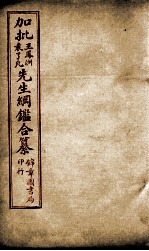 加批王鳳洲袁了凡先生綱鑑合纂
錦章圖書局印行